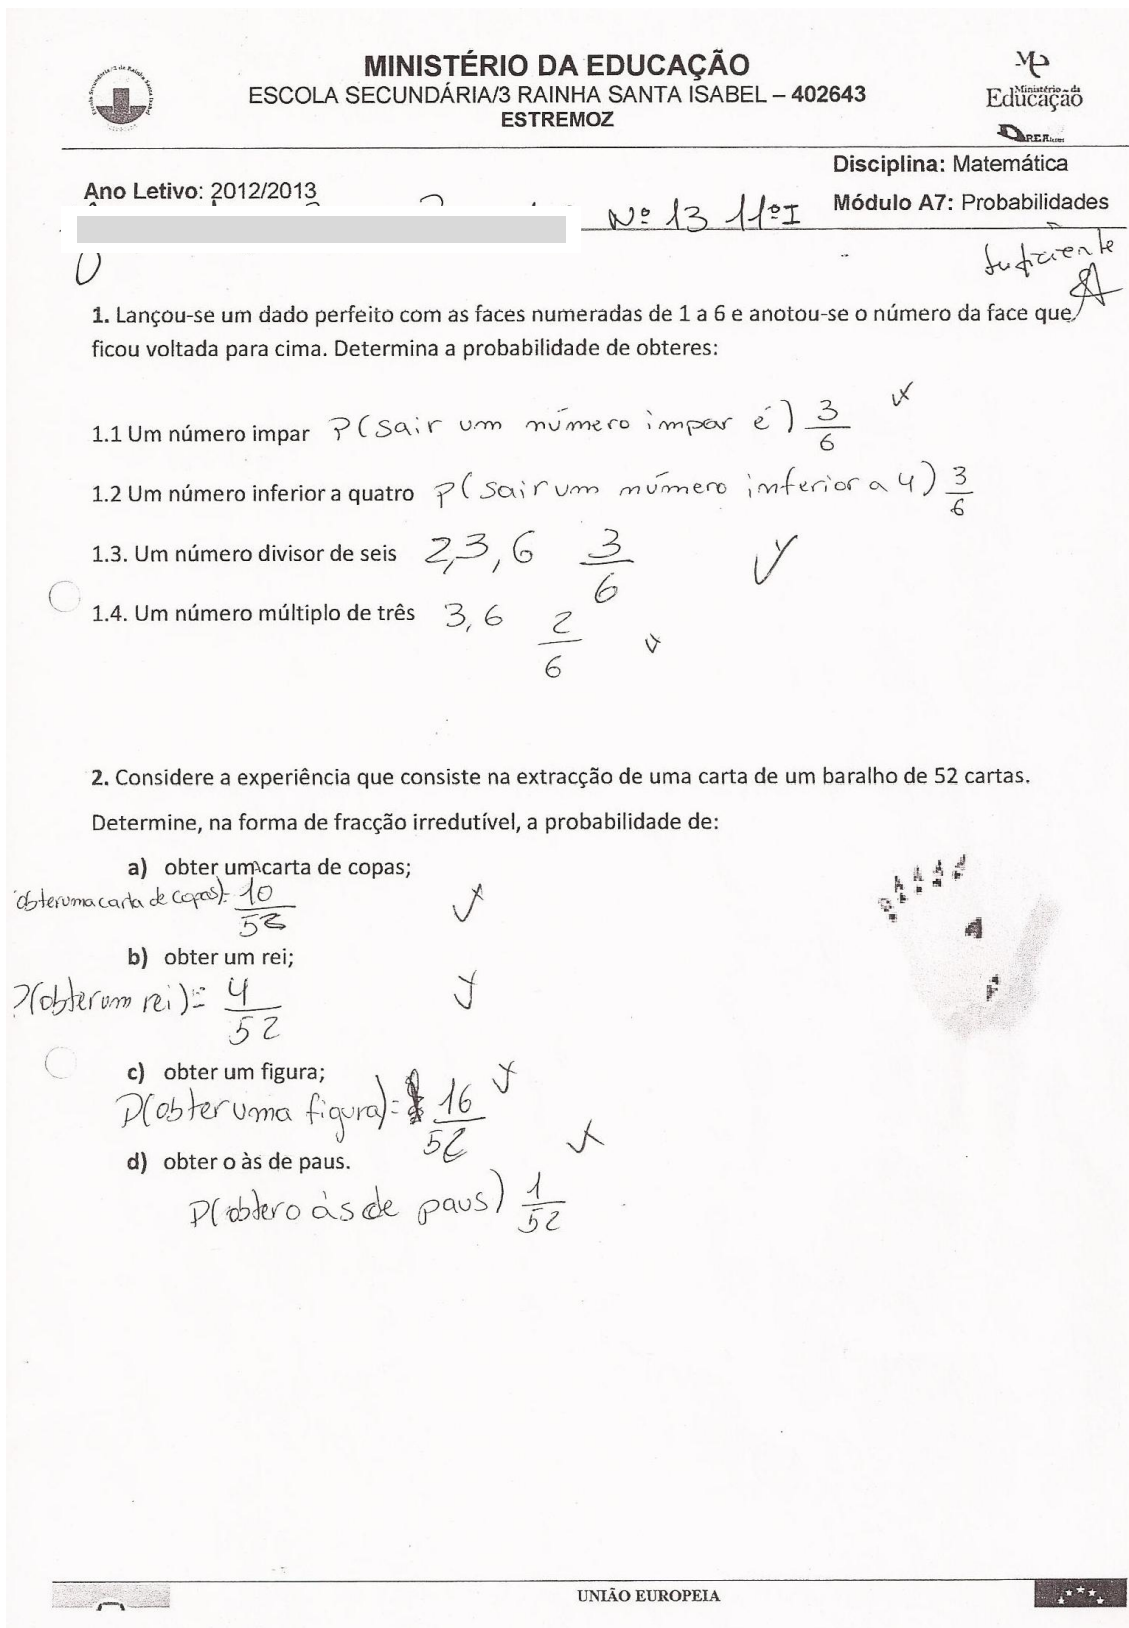 MINISTÉRIO DA EDUCAÇÃO
ESCOLA SECUNDÁRIA/3 RAINHA SANTA ISABEL – 402643
ESTREMOZ
Ministério da
Educação
Disciplina: Matemática
Ano Letivo: 2012/2013
Módulo A7: Probabilidades
Nº 13 11ºI
Suficiente
1. Lançou-se um dado perfeito com as faces numeradas de 1 a 6 e anotou-se o número da face que
ficou voltada para cima. Determina a probabilidade de obteres:
1.1 Um número impar P(sair um número impar é) 3/6
1.2 Um número inferior a quatro P(sair um número inferior a 4) 3/6
1.3. Um número divisor de seis 2,3,6 3/6
1.4. Um número múltiplo de três 3,6 2/6
2. Considere a experiência que consiste na extracção de uma carta de um baralho de 52 cartas.
Determine, na forma de fracção irredutível, a probabilidade de:
a) obter um carta de copas;
obter uma carta de copas)= 10/52
b) obter um rei;
P(obter um rei)= 4/52
c) obter um figura;
P(obter uma figura)= 16/52
d) obter o às de paus.
P(obter o às de paus) 1/52
UNIÃO EUROPEIA